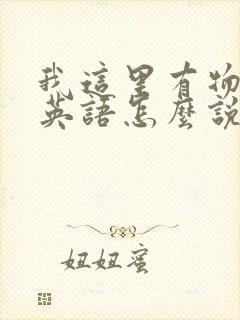 我這里有物
英語怎麼說
妞妞蜜